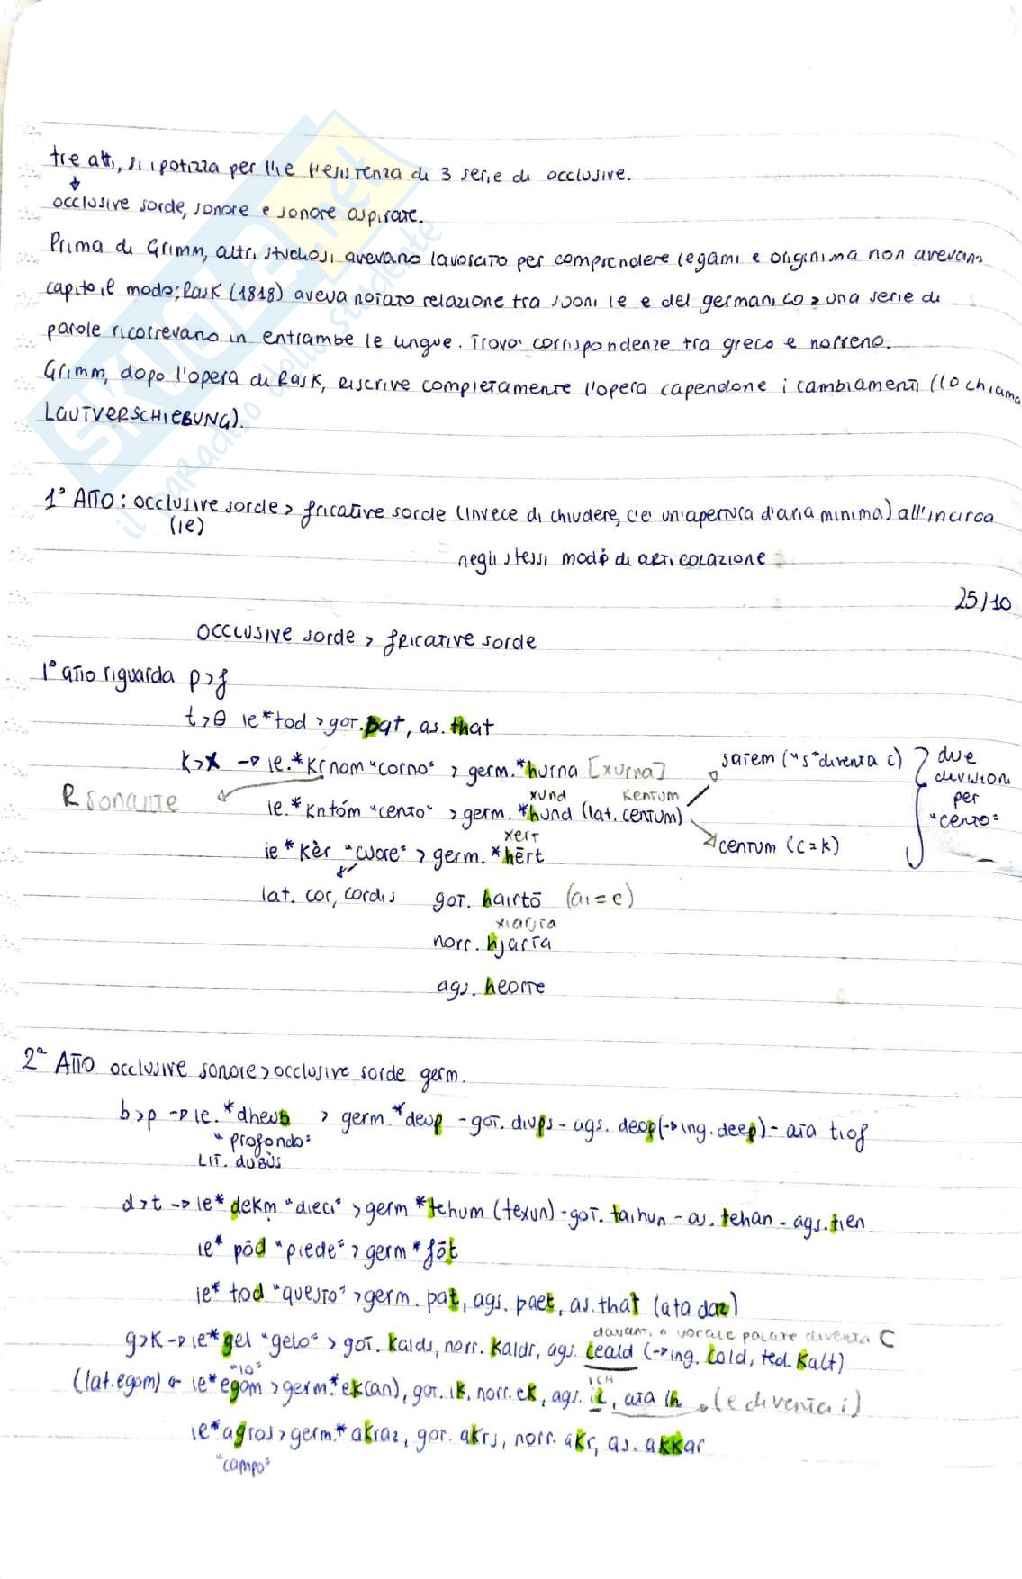 tre atti, si ipotizza per l'ie l'esistenza di 3 serie di occlusive.
↓
occlusive sorde, sonore e sonore aspirate.
Prima di Grimm, altri studiosi avevano lavorato per comprendere legami e origini ma non avevano
capito il modo; Rask (1818) aveva notato relazione tra suoni ie e del germanico > una serie di
parole ricorrevano in entrambe le lingue. Trovò corrispondenze tra greco e norreno.
Grimm, dopo l'opera di Rask, riscrive completamente l'opera capendone i cambiamenti (lo chiama
LAUTVERSCHIEBUNG).
1° ATTO: occlusive sorde > fricative sorde (invece di chiudere, c'è un'apertura d'aria minima) all'incirca
(ie)
negli stessi modi di articolazione
25/10
occlusive sorde > fricative sorde
1° atto riguarda p>f
t>θ ie*tod > got. þat, as. that
k>x → ie.*kṛnom "corno" > germ.*hurna [xurna]
satem ("s" diventa c)
due divisioni per "cento"
R sonante
xund kentum
ie.*kntóm "cento" > germ. *hund (lat. centum)
centum (c=k)
xert
ie*kèr "cuore" > germ.*hērt
lat. cor, cordis got. hairtō (ai=e)
xiarta
norr. hjarta
ags. heorte
2° ATTO occlusive sonore > occlusive sorde germ.
b>p → ie.*dheub > germ.*deup - got. diups - ags. deop (→ing. deep) - ata tiof
"profondo"
LIT. dubùs
d>t → ie*dekṃ "dieci" > germ*tehum (texun) - got. taihun - as. tehan - ags. tien
ie* pōd "piede" > germ*fōt
ie* tod "questo" > germ. þat, ags. þaet, as. that (ata daz)
davanti a vocale palatale diventa C
g>k → ie*gel "gelo" > got. kalds, norr. kaldr, ags. ceald (→ing. cold, ted. kalt)
"io" ICH
(lat. egom) ← ie*egom > germ.*ek(an), got. ik, norr. ek, ags. ic, ata ih (e diventa i)
ie*agros > germ.*akraz, got. akrs, norr. akr, as. akkar
"campo"
SKUOLA.net
il paradiso dello studente